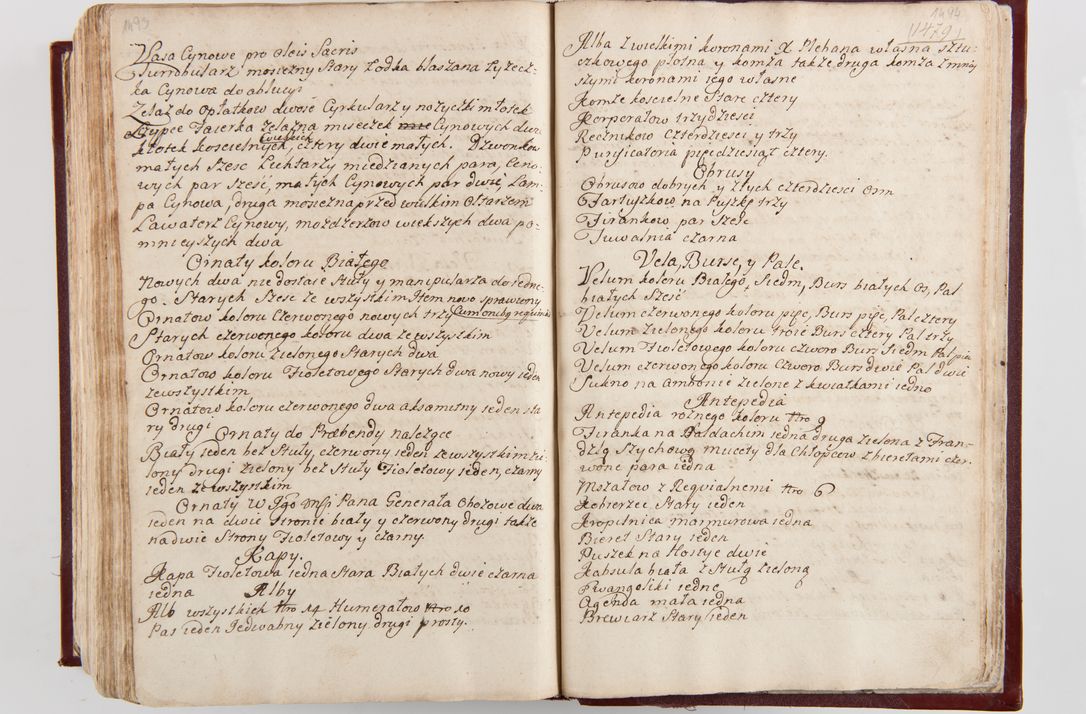 1493
Vasa Cynowe pro oleis Sacris
Turrobularz mosiezny Stary Łodka blaszana Łyzecz-
ka Cynowa do ablucyi
Zelaz do Opłatkow dwoie Cyrkularz y nozyczki młotek
Szypce Facerka zelazna miseczek Cynowych dwie
kłotek koscielnych wielkich cztery dwie małych. Dzwonkow
małych Szesc Lichtarzy miedzianych para, Cyno-
wych par Szesć, małych Cynowych par dwie, Lam-
pa Cynowa, druga mosiezna przed wielkim Ołtarzem
Lawaterz Cynowy, mozdzerzow wiekszych dwa po-
mnieyszych dwa
Ornaty koloru Białego
Nowych dwa nie dostaie Stuły y manipularza do iedne-
go. Starych Szesc ze wszystkim Item nowo sprawiony
Ornatow koloru Czerwonego nowych trzy cum omnibg requisitis
Starych czerwonego koloru dwa ze wszystkim
Ornatow koloru zielonego Starych dwa
Ornatow koloru Fioletowego Starych dwa nowy ieden
ze wszystkim
Ornatow koloru czerwonego dwa aksamitny ieden sta
ry drugi
Ornaty do Præbendy nalezące
Biały ieden bez Stuły, czerwony ieden ze wszystkim zie
lony drugi zielony bez Stuły Fioletowy ieden, czarny
ieden ze wszystkim
Ornaty W Jgo Pana Generała Obozowe dwa
ieden na dwie Stronie biały y czerwony drugi także
na dwie Strony Fioletowy y czarny.
Kapy.
Kapa Fioletowa iedna Stara Białych dwie czarna
iedna
Alby
Alb wszystkich Nro 14 Humerałow Nro 10
Pas ieden Jedwabny zielony drugi prosty.
1494
1479
Alba z wielkimi koronami X Plebana własna Sztu-
czkowego płotna y komza także druga komza z mniey
szymi koronami iego własne
Komze koscielne Stare cztery
Korporałow trzydziesci
Recznikow Czterdziesci y trzy
Puryficatoria pięcdziesiąt cztery.
Obrusy
Obrusow dobrych y złych czterdziesci Osm
Fartuszkow na Puszkę trzy
Firankow par Szesc
Tuwalnia czarna
Vela, Burse, y Pale.
Velum koloru Białego, Siedm, Burs białych Os, Pal
białych Szesć
Velum czerwonego koloru pięc, Burs pięc, Pal cztery
Velum zielonego koloru troie Burs cztery Pal trzy
Velum Fioletowego koloru czworo Burs Siedm Pal pięc
Velum czerwonego koloru Czworo Burs dwie Pal dwie
Sukno na ambonie zielone z kwiatkami iedno
Antepedia
Antepedia roznego koloru Nro 9
Firanka na Baldachim iedna druga zielona z Fran-
dzlą Szychową mucety dla Chłopcow z biretami czer-
wone para iedna
Mszałow z Requialnemi Nro 6
Kobierzec Stary ieden
Kropilnica marmurowa iedna
Bieret Stary ieden
Puszek na Hostye dwie
Kapsula biała z Stułą zieloną
Ewangeliki iedne
Agenda mała iedna
Brewiarz Stary ieden